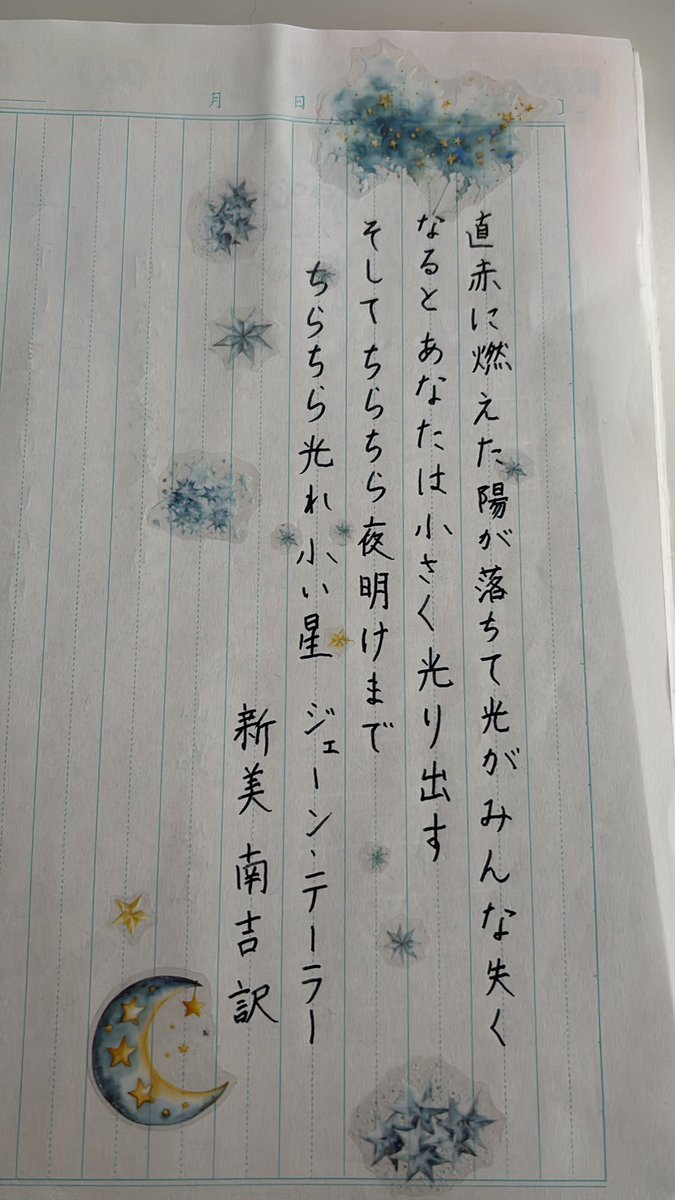 月 日
直赤に燃えた陽が落ちて光がみんな失く
なるとあなたは小さく光り出す
そしてちらちら夜明けまで
ちらちら光れ小い星 ジェーン・テーラー
新美南吉訳